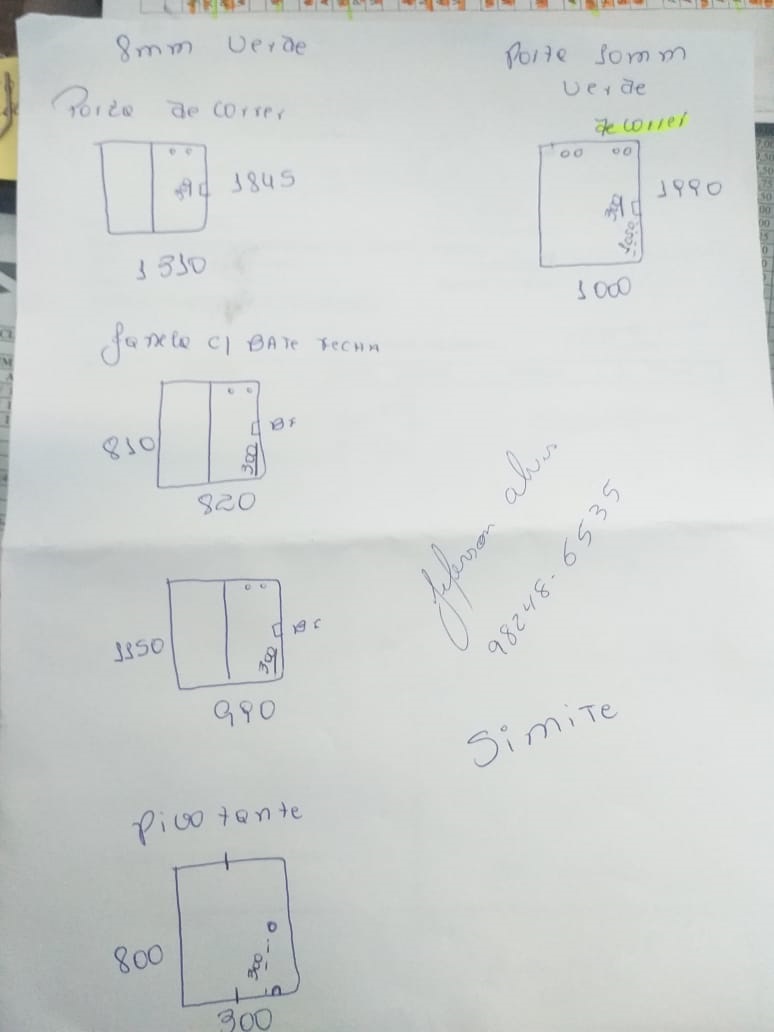 8mm verde
Porta de correr
1845
1310
Janela c/ BATE FECHA
810
BF
300
820
1150
BF
300
990
Pivotante
800
300
300
Porta 10mm
verde
de correr
1990
1050
1000
Jeferson alves
98248-6535
Simite